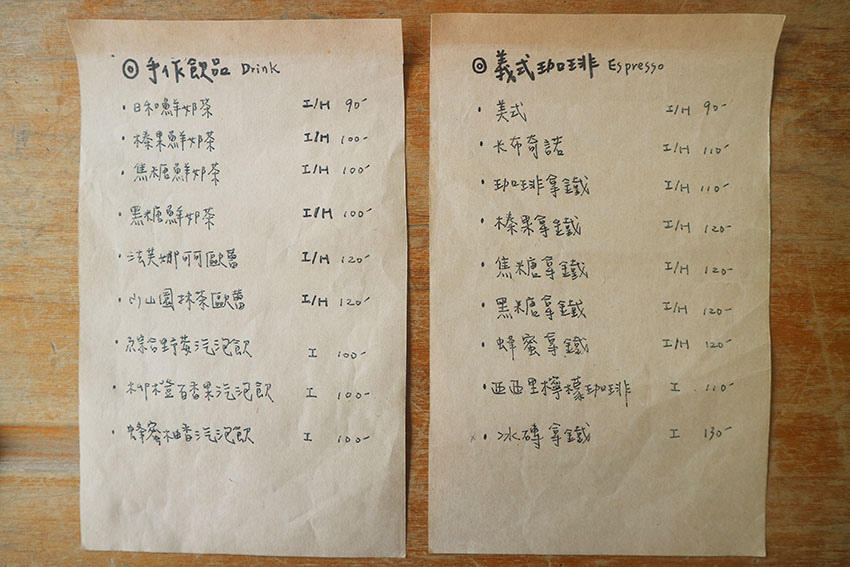 ◎手作飲品 Drink
・日和鮮奶茶 I/H 90-
・榛果鮮奶茶 I/H 100-
・焦糖鮮奶茶 I/H 100-
・黑糖鮮奶茶 I/H 100-
・法芙娜可可歐蕾 I/H 120-
・小山園抹茶歐蕾 I/H 120-
・綜合野莓汽泡飲 I 100-
・柳橙百香果汽泡飲 I 100-
・蜂蜜柚香汽泡飲 I 100-
◎義式珈琲 Espresso
・美式 I/H 90-
・卡布奇諾 I/H 110-
・珈琲拿鐵 I/H 110-
・榛果拿鐵 I/H 120-
・焦糖拿鐵 I/H 120-
・黑糖拿鐵 I/H 120-
・蜂蜜拿鐵 I/H 120-
・西西里檸檬珈琲 I 110-
×・冰磚拿鐵 I 130-